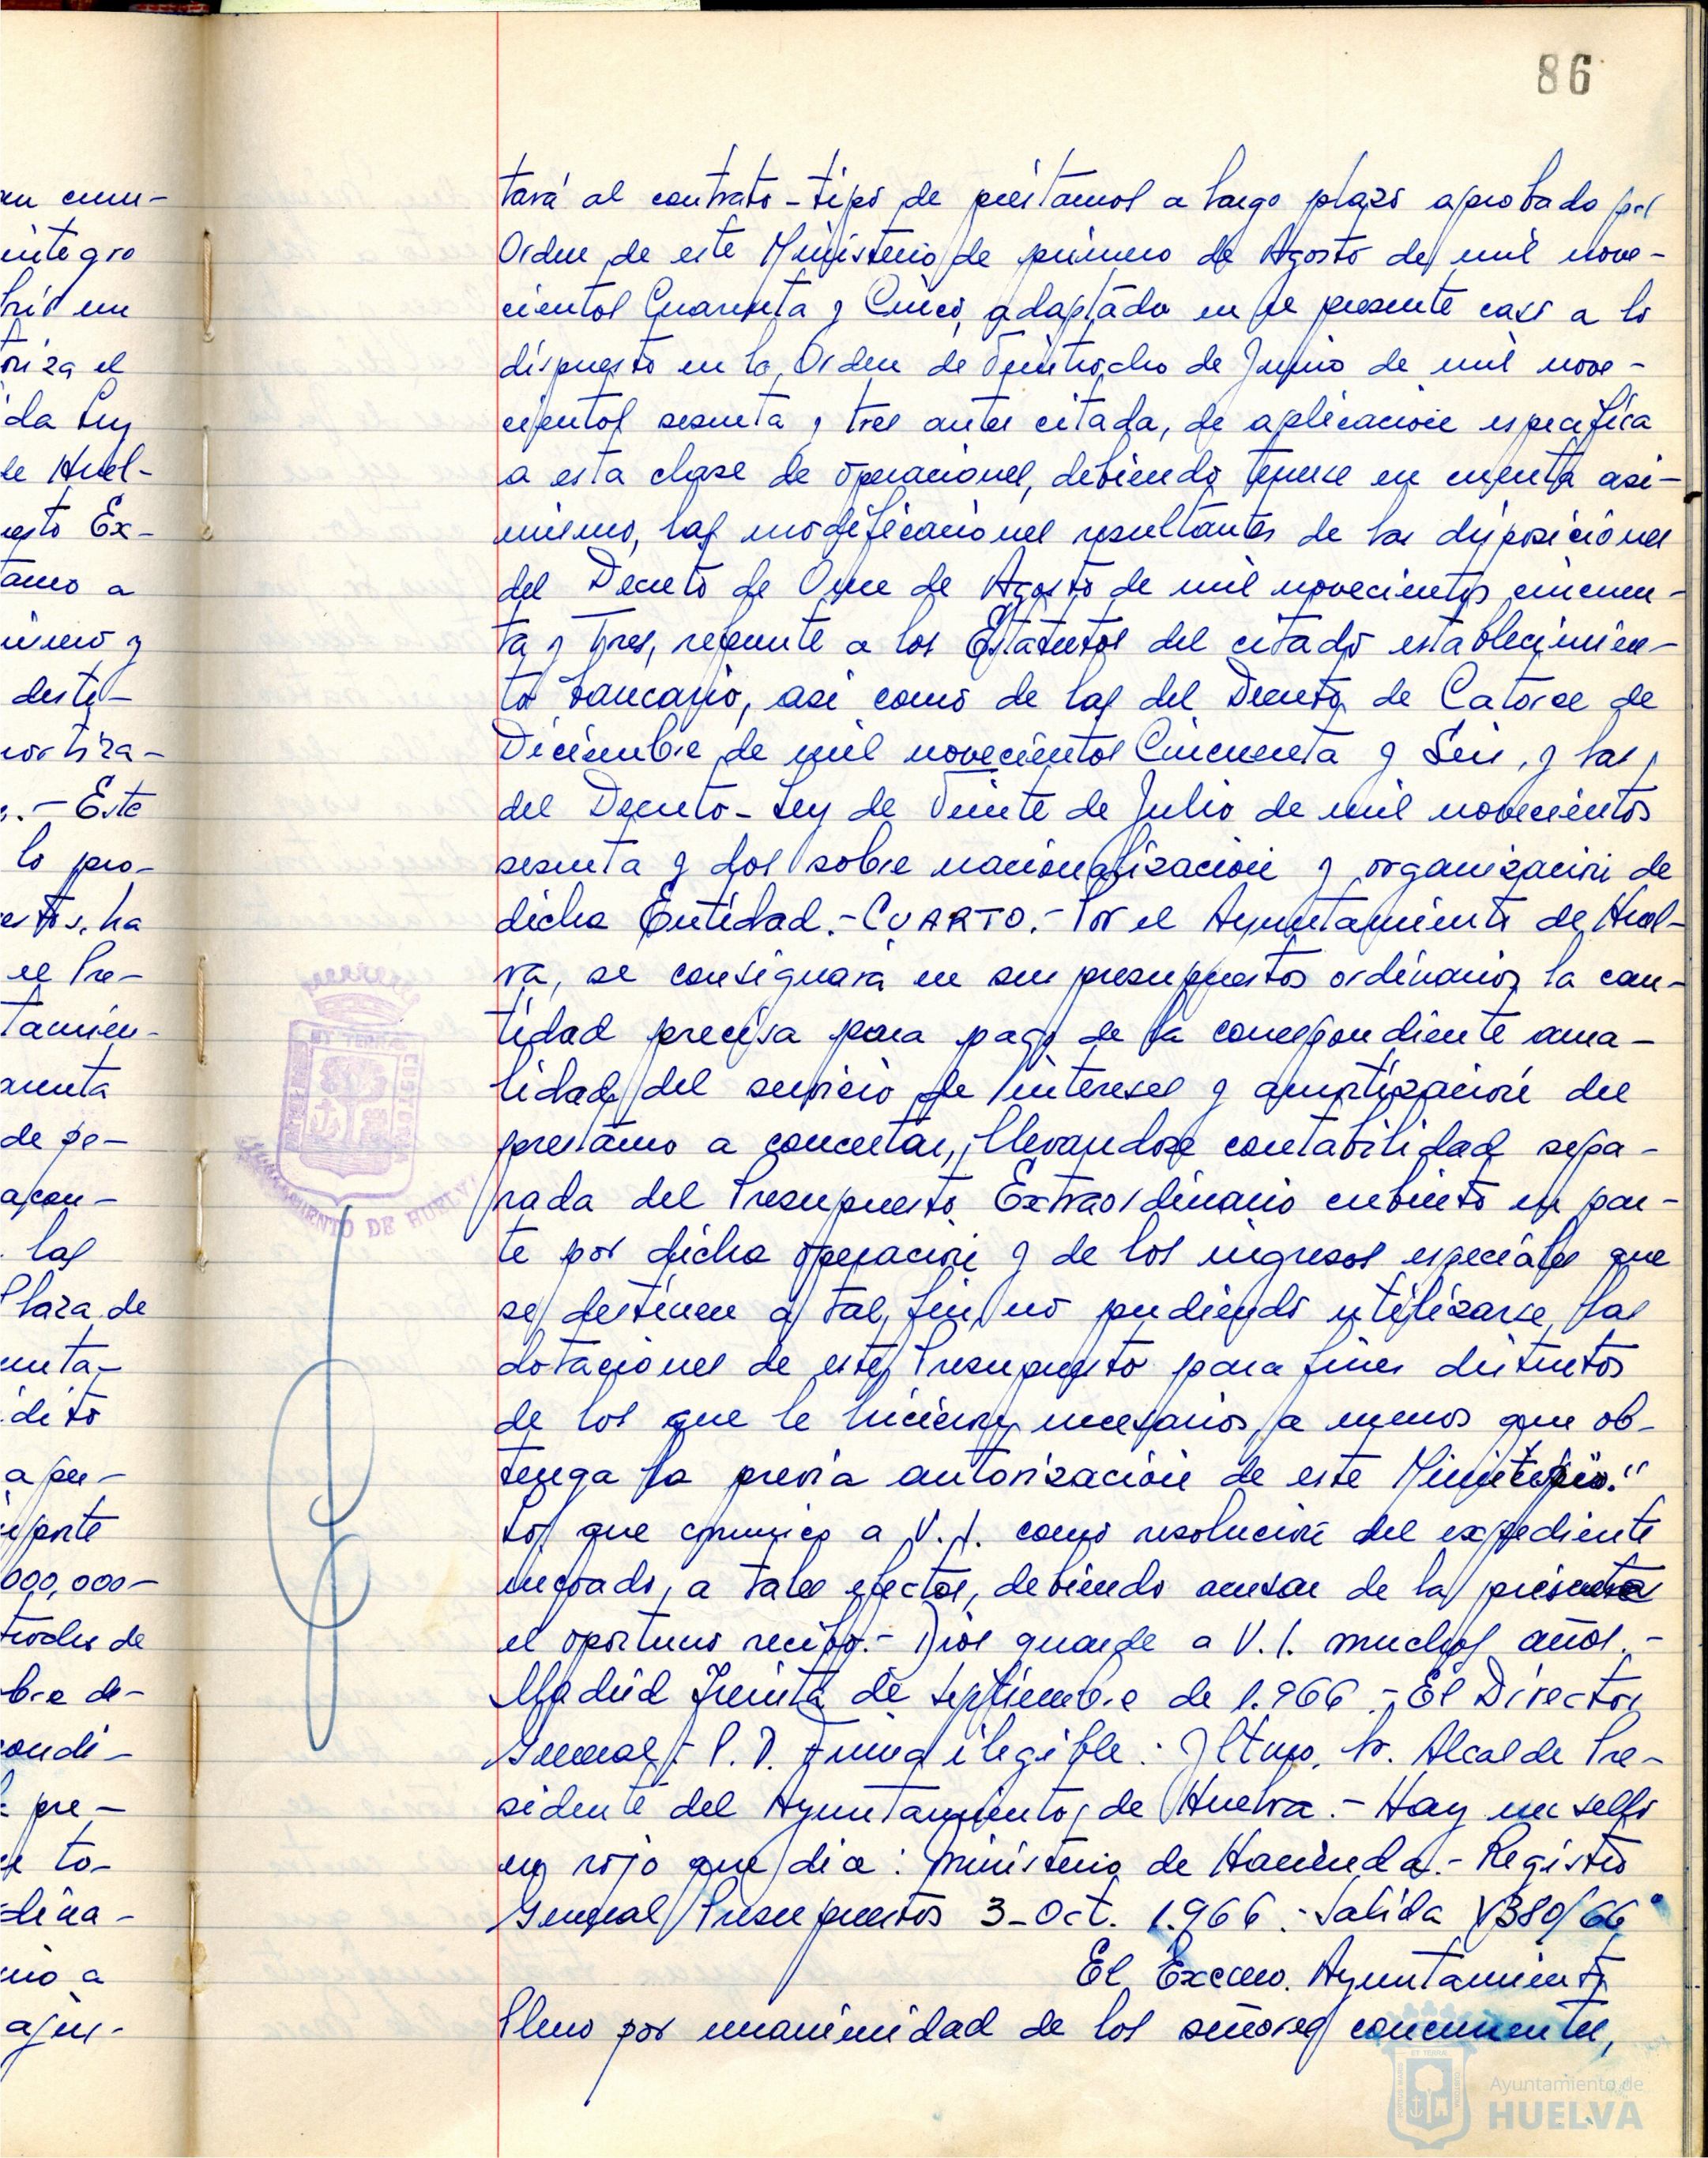 86
tará al contrato-tipo de préstamos a largo plazo aprobado por
Orden de este Ministerio de primero de Agosto de mil nove-
cientos Cuarenta y Cinco, adaptado en el presente caso a lo
dispuesto en la Orden de Veintiocho de Junio de mil nove-
cientos sesenta y tres antes citada, de aplicación específica
a esta clase de operaciones, debiendo tenerse en cuenta asi-
mismo, las modificaciones resultantes de las disposiciones
del Decreto de Once de Agosto de mil novecientos cincuen-
ta y Tres, referente a los Estatutos del citado establecimien-
to bancario, asi como de las del Decreto de Catorce de
Diciembre de mil novecientos Cincuenta y Seis, y las
del Decreto-Ley de Veinte de Julio de mil novecientos
sesenta y dos sobre nacionalización y organización de
dicha Entidad.- CUARTO.- Por el Ayuntamiento de Huel-
va, se consignará en sus presupuestos ordinarios la can-
tidad precisa para pago de la correspondiente anua-
lidad del servicio de intereses y amortización del
prestamo a concertar, llevandose contabilidad sepa-
rada del Presupuesto Extraordinario cubierto en par-
te por dicha operación y de los ingresos especiales que
se destinen a tal fin, no pudiendo utilizarse las
dotaciones de este Presupuesto para fines distintos
de los que le hicieron necesarios, a menos que ob-
tenga la previa autorización de este Ministerio."
Lo que comunico a V.I. como resolución del expediente
incoado, a tales efectos, debiendo acusar de la presente
el oportuno recibo.- Dios guarde a V.I. muchos años.-
Madrid Treinta de Septiembre de 1.966.- El Director
General.- P.D. Firma ilegible.- Iltmo. Sr. Alcalde Pre-
sidente del Ayuntamiento de Huelva.- Hay un sello
en rojo que dice: Ministerio de Hacienda.- Registro
General Presupuestos 3-Oct. 1.966.- Salida 380/66
El Excmo. Ayuntamiento
Pleno por unanimidad de los señores concurrentes,
integro
riza el
da Ley
de Huel-
esto Ex-
tamo a
desti-
mortiza-
.- Este
lo pro-
ha
el Pre-
tamien-
de pe-
las
Plaza de
dito
000,000-
bre de-
condi-
pre-
to-
AYUNTAMIENTO DE HUELVA
Ayuntamiento de
HUELVA